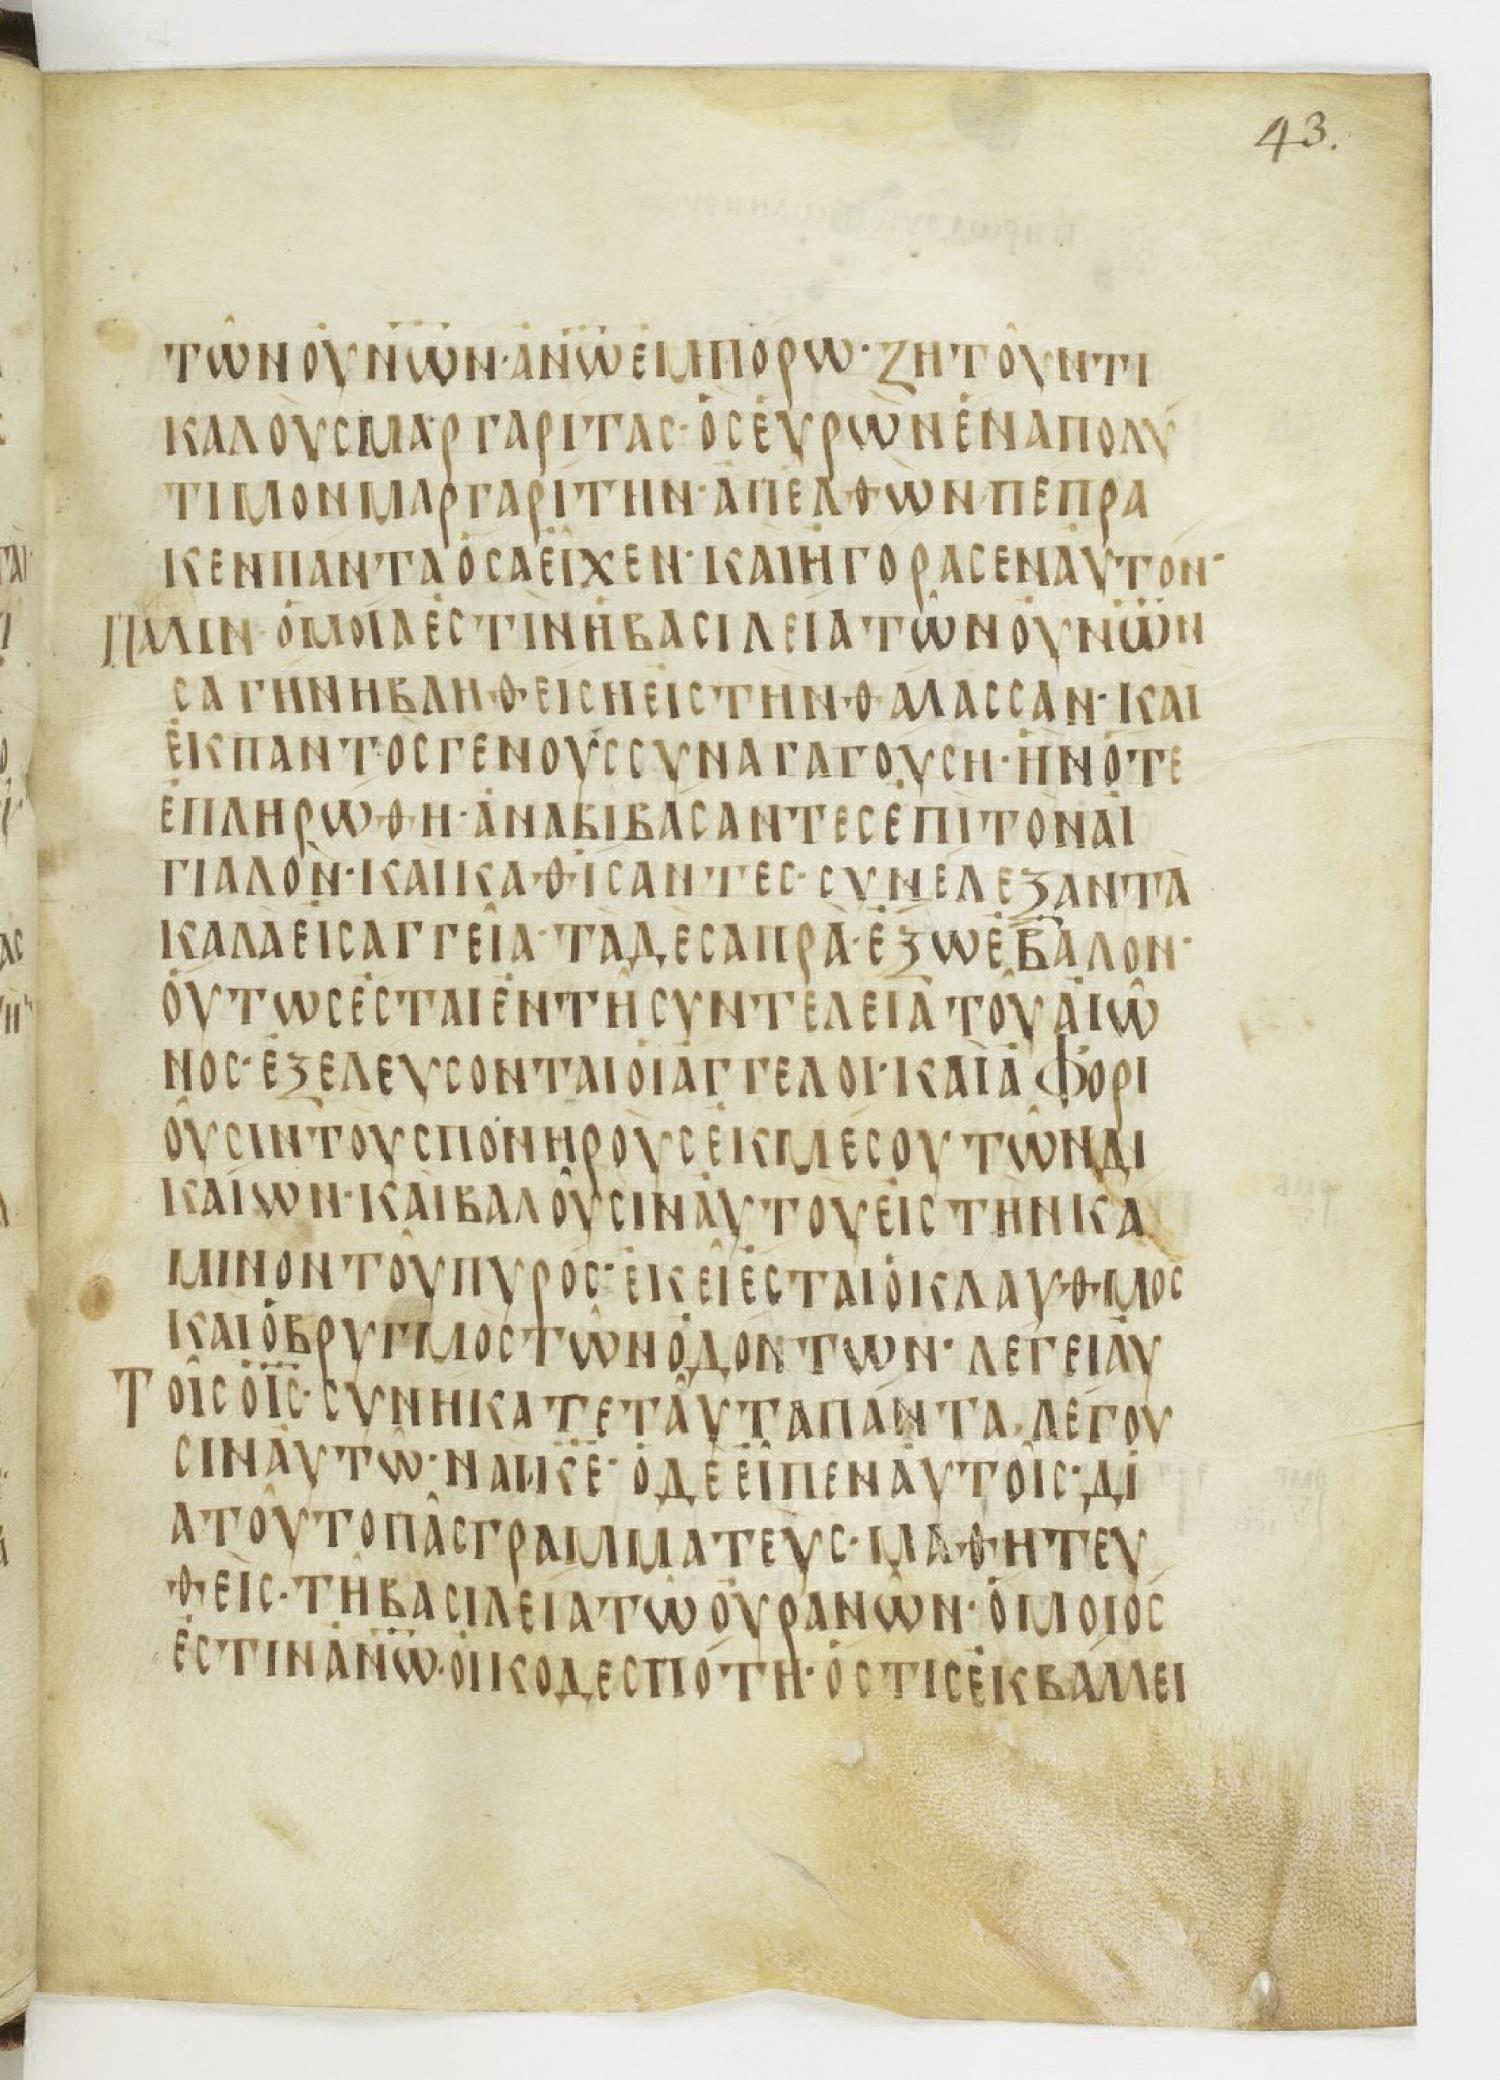 43.
τῶν οὐν̅ω̅ν· ἀν̅ω̅ ἐμπόρω· ζητοῦντι
καλοὺς μαργαρίτας· ὃς εὑρὼν ἕνα πολύ
τιμον μαργαρίτην· ἀπελθὼν πέπρα
κεν πάντα ὅσα εἶχεν· καὶ ἠγόρασεν αὐτόν·
Πάλιν· ὁμοία ἐστὶν ἡ βασιλεία τῶν οὐν̅ω̅ν
σαγήνη βληθείση εἰς τὴν θάλασσαν· καὶ
ἐκ παντὸς γένους συναγαγούση· ἣν ὅτε
ἐπληρώθη· ἀναβιβάσαντες ἐπὶ τὸν αἰ
γιαλὸν· καὶ καθίσαντες· συνέλεξαν τὰ
καλὰ εἰς ἀγγεῖα· τὰ δὲ σαπρὰ· ἔξω ἔβαλον·
οὕτως ἔσται ἐν τῇ συντελεία τοῦ αἰῶ
νος· ἐξελεύσονται οἱ ἄγγελοι· καὶ ἀφορι
οῦσιν τοὺς πονηροὺς ἐκ μέσου τῶν δι
καίων· καὶ βαλοῦσιν αὐτοὺ εἰς τὴν κά
μινον τοῦ πυρός· ἐκεῖ ἔσται ὁ κλαυθμὸς
καὶ ὁ βρυγμὸς τῶν ὀδόντων· λέγει αὐ
Τοῖς ὁ ι̅ς̅· συνήκατε ταῦτα πάντα· λέγου
σιν αὐτῶ· ναὶ κ̅ε̅· ὁ δὲ εἶπεν αὐτοῖς· δι
ὰ τοῦτο πᾶς γραμματεὺς· μαθητευ
θεὶς· τῇ βασιλεία τῶ οὐρανῶν· ὅμοιός
ἐστιν ἀν̅ω̅· οἰκοδεσπότη· ὅστις ἐκβάλλει